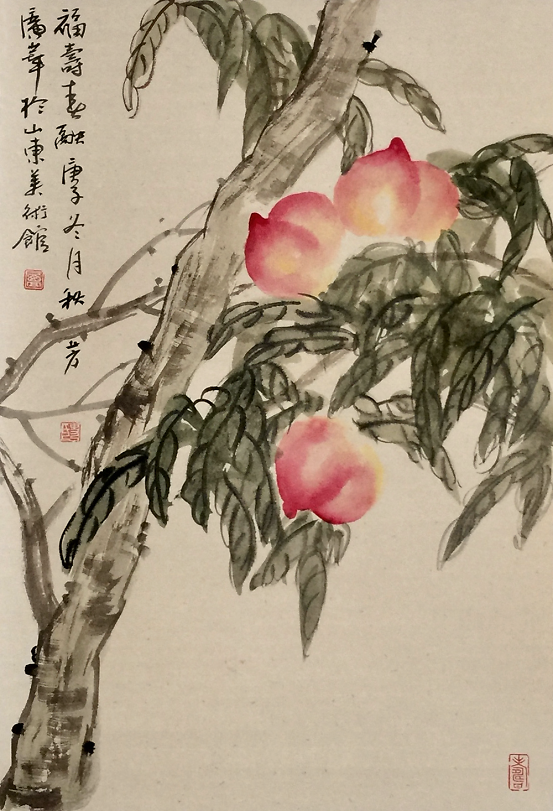 福壽春融庚子冬月秋芳
廣華於山東美術館